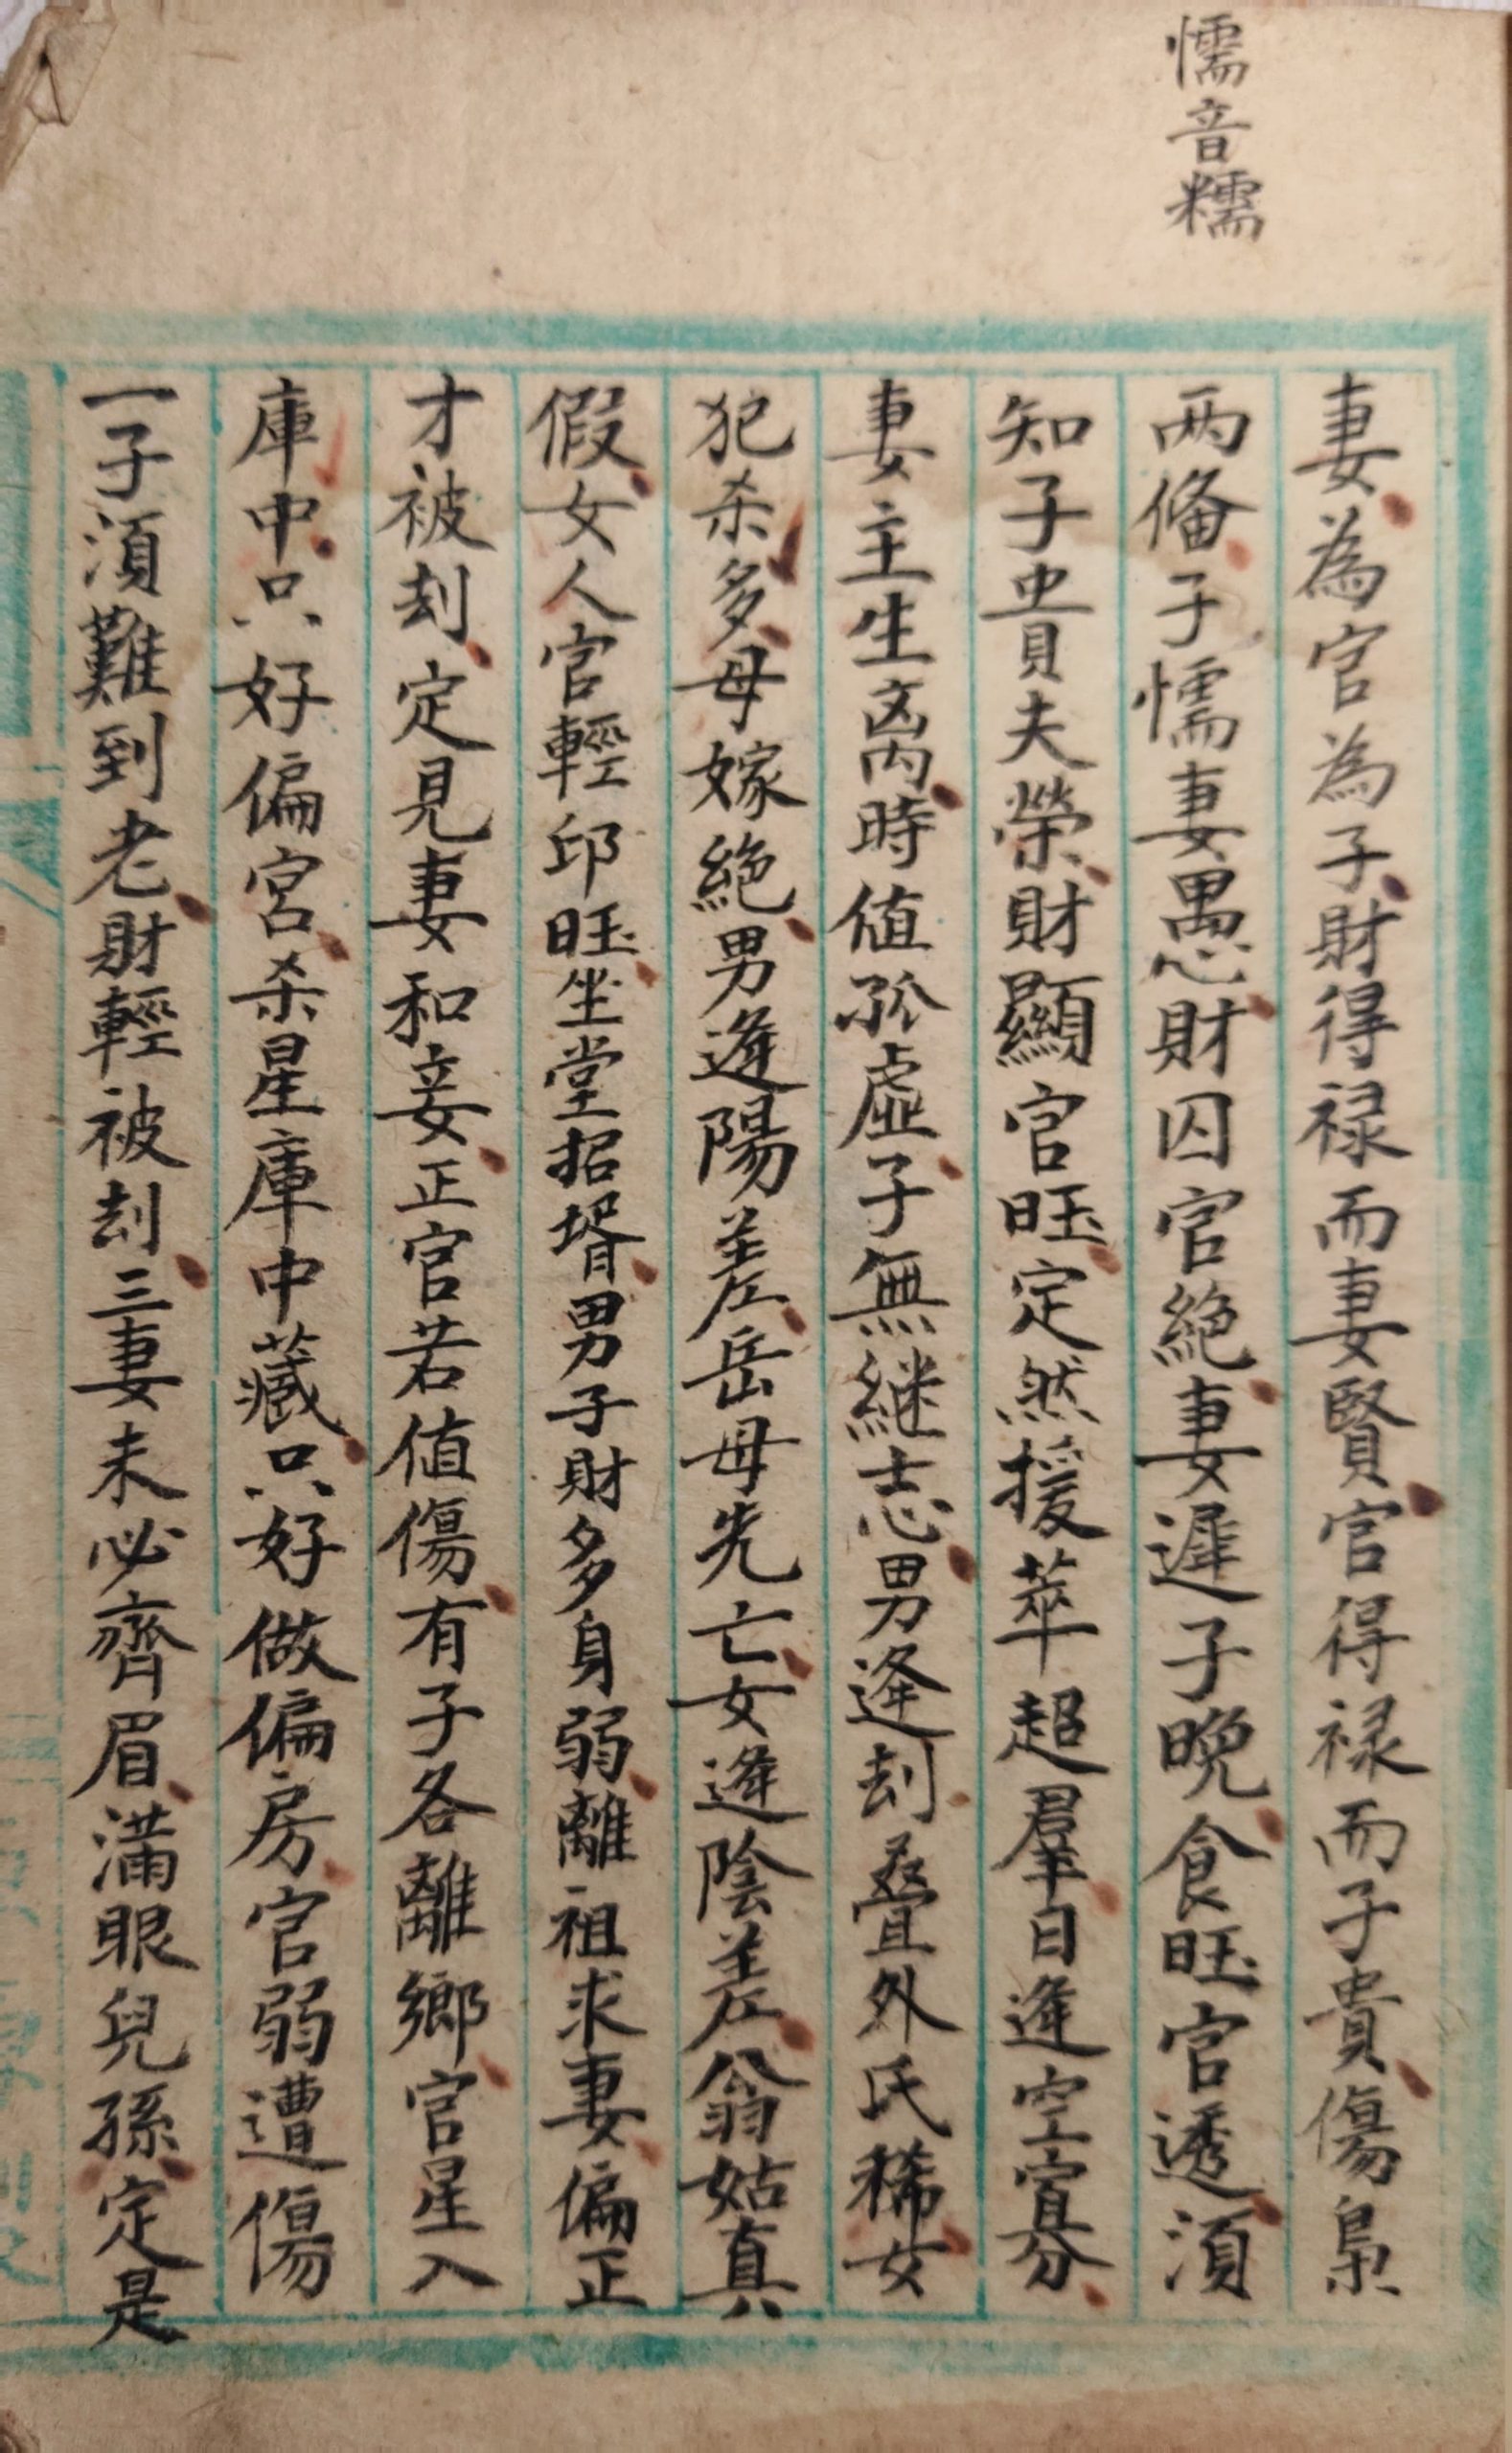 懦音糯
妻為官為子財得禄而妻賢官得禄而子貴傷梟
两俻子懦妻愚財囚官絶妻遲子晚食旺官透湏
知子貴夫榮財顯官旺定然援萃超羣日逢空寡
妻主生离時值孤虛子無継志男逢刦疊外氏稀女
犯杀多母嫁絶男逢陽差岳母先亡女逢陰差翁姑真
假女人官輕印旺坐堂招壻男子財多身弱離祖求妻偏正
才被刦定見妻和妾正官若值傷有子各離鄉官星入
庫中只好偏宮杀星庫中藏只好做偏房官弱遭傷
一子湏難到老財輕被刦三妻未必齊眉滿眼兒孫定是